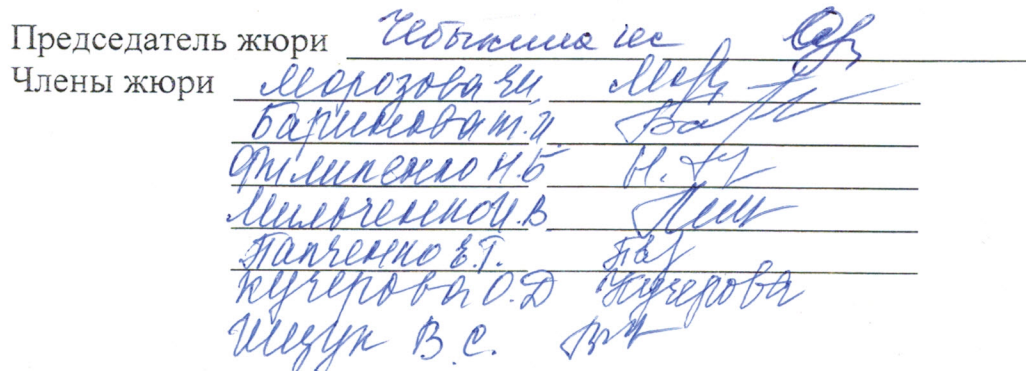 Председатель жюри Чебыкина
Члены жюри Морозова Е.И.
Баринова Т.И.
Филипенко Н.Б
Мильченко И.В
Папченко Е.Г.
Кучерова О.Д Кучерова
Ищук В.С.